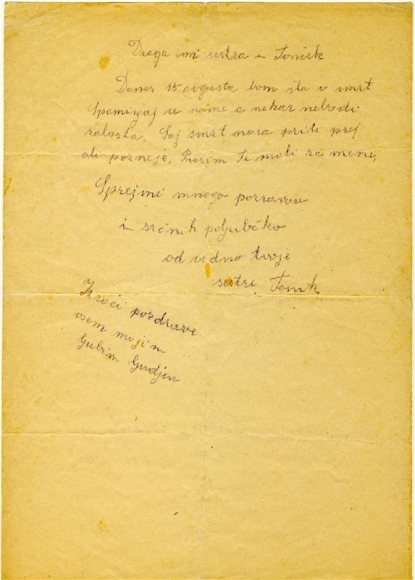 Draga mi sestra in Tonček
Danes 15 avgusta bom šla v smrt
Spominjaj se name a nekar nebodi
žalosta. Saj smrt mora priti prej
ali pozneje. Prosim te moli za mene,
Sprejmi mnogo pozdravov
i srčnih poljubčko
od vedno tvoje
sestre Tonk
Izroči pozdrave
vsem mojim